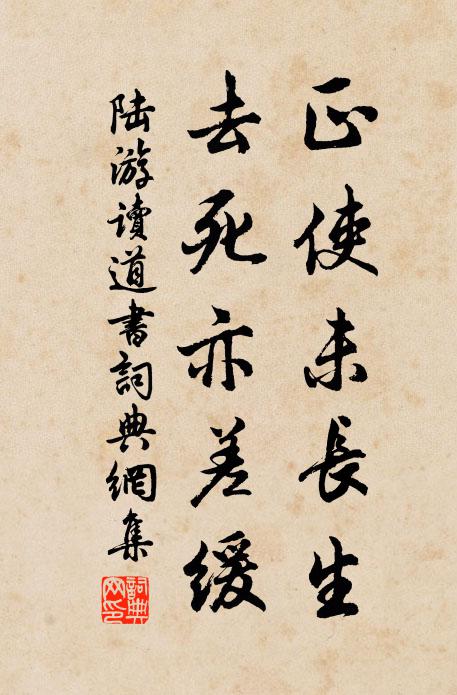 正使未長生
去死亦差緩
陸游讀道書詞典網集
詞典網印